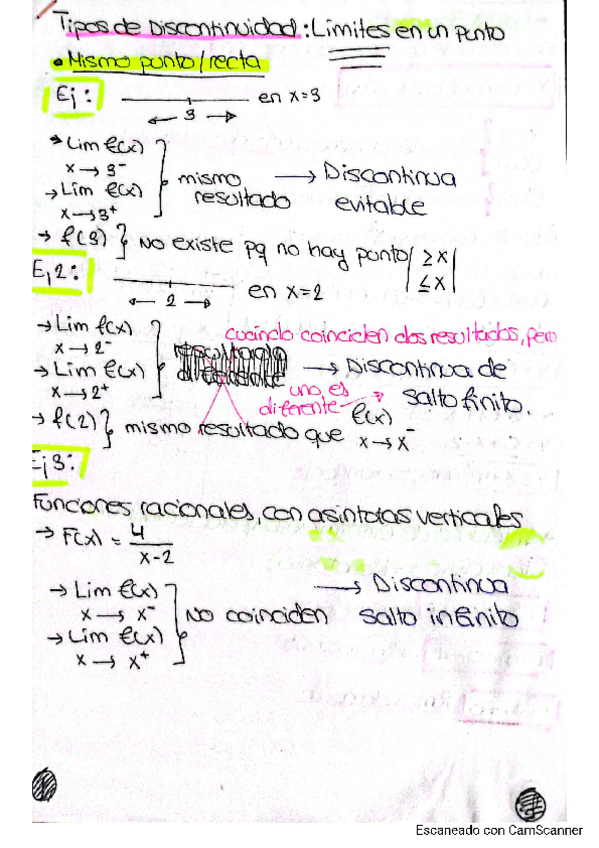 Tipos de Discontinuidad: Limites en un punto
• Mismo punto/recta
Ej: 3 en x=3
→ Lim f(x)
x→3⁻
→ Lim f(x)
x→3⁺
mismo resultado → Discontinua evitable
→ f(3) } No existe pq no hay punto | ≥x
≤x |
Ej2: 2 en x=2
→ Lim f(x)
x→2⁻
→ Lim f(x)
x→2⁺
cuando coinciden dos resultados, pero
uno es diferente
→ Discontinua de salto finito.
→ f(2) } mismo resultado que f(x)
x→x⁻
Ej3:
Funciones racionales, con asintotas verticales
→ F(x) = 4
x-2
→ Lim f(x)
x→x⁻
→ Lim f(x)
x→x⁺
No coinciden → Discontinua salto infinito
Escaneado con CamScanner